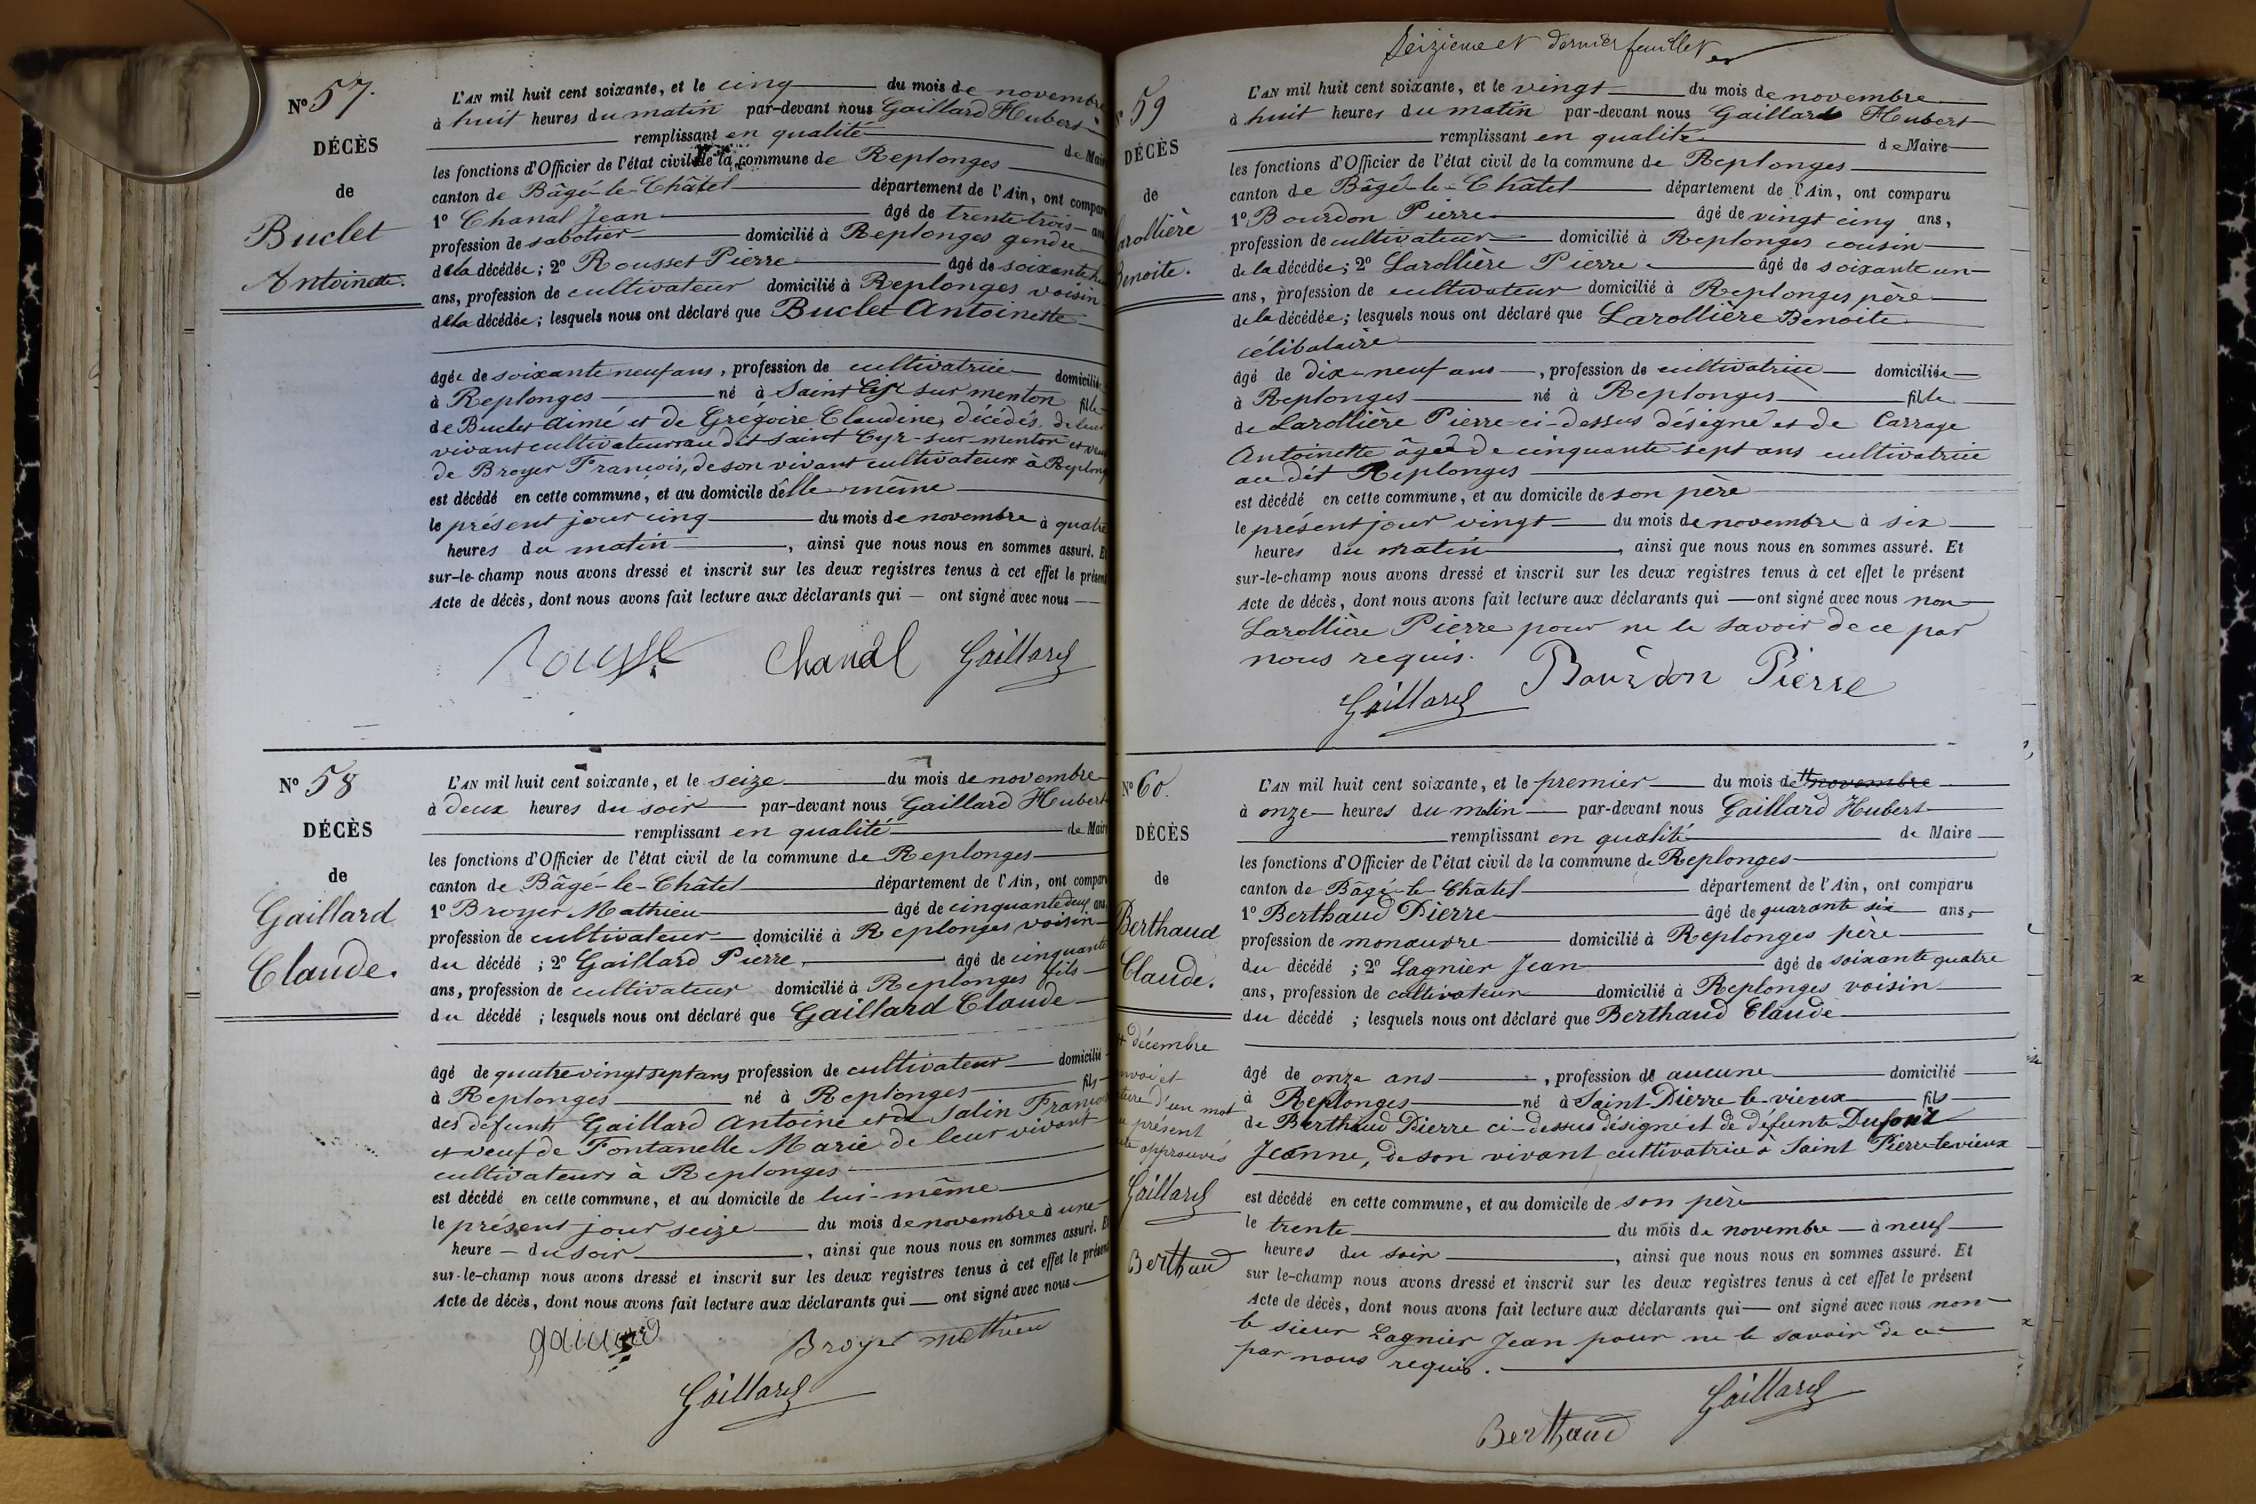 No 57.
DÉCÈS
de
Buclet
Antoinette.
L'AN mil huit cent soixante, et le cinq du mois de novembre
à huit heures du matin par-devant nous Gaillard Hubert
remplissant en qualité de Maire
les fonctions d'Officier de l'état civil de la commune de Replonges
canton de Bâgé-le-Châtel département de l'Ain, ont comparu
1o Chanal Jean âgé de trente trois ans
profession de sabotier domicilié à Replonges gendre
de la décédée; 2o Rousset Pierre âgé de soixante
ans, profession de cultivateur domicilié à Replonges voisin
de la décédée; lesquels nous ont déclaré que Buclet Antoinette
âgée de soixante neuf ans, profession de cultivatrice domiciliée
à Replonges né à Saint Cyr sur menton fille
de Buclet Aimé et de Grégoire Claudine, décédés, de leur
vivant cultivateurs au dit saint Cyr-sur-menton et veuve
de Broyer François, de son vivant cultivateur à Replonges
est décédé en cette commune, et au domicile d'elle même
le présent jour cinq du mois de novembre à quatre
heures du matin, ainsi que nous nous en sommes assuré. Et
sur-le-champ nous avons dressé et inscrit sur les deux registres tenus à cet effet le présent
Acte de décès, dont nous avons fait lecture aux déclarants qui — ont signé avec nous
Chanal Gaillard
No 58
DÉCÈS
de
Gaillard
Claude.
L'AN mil huit cent soixante, et le seize du mois de novembre
à deux heures du soir par-devant nous Gaillard Hubert
remplissant en qualité de Maire
les fonctions d'Officier de l'état civil de la commune de Replonges
canton de Bâgé-le-Châtel département de l'Ain, ont comparu
1o Broyer Mathieu âgé de cinquante deux ans
profession de cultivateur domicilié à Replonges voisin
du décédé ; 2o Gaillard Pierre âgé de cinquante
ans, profession de cultivateur domicilié à Replonges fils
du décédé ; lesquels nous ont déclaré que Gaillard Claude
âgé de quatre vingt sept ans profession de cultivateur domicilié
à Replonges né à Replonges fils
des défunts Gaillard Antoine et de Salin
et veuf de Fontanelle Marie de leur vivant
cultivateurs à Replonges
est décédé en cette commune, et au domicile de lui-même
le présent jour seize du mois de novembre à une
heure du soir, ainsi que nous nous en sommes assuré. Et
sur-le-champ nous avons dressé et inscrit sur les deux registres tenus à cet effet le présent
Acte de décès, dont nous avons fait lecture aux déclarants qui — ont signé avec nous
Broyer mathieu
Gaillard
Seizieme et dernier feuillet
59
DÉCÈS
de
Larollière
Benoite.
L'AN mil huit cent soixante, et le vingt du mois de novembre
à huit heures du matin par-devant nous Gaillard Hubert
remplissant en qualité de Maire
les fonctions d'Officier de l'état civil de la commune de Replonges
canton de Bâgé-le-Châtel département de l'Ain, ont comparu
1o Bourdon Pierre âgé de vingt cinq ans,
profession de cultivateur domicilié à Replonges cousin
de la décédée; 2o Larollière Pierre âgé de soixante un
ans, profession de cultivateur domicilié à Replonges père
de la décédée; lesquels nous ont déclaré que Larollière Benoite
célibataire
âgé de dix-neuf ans, profession de cultivatrice domiciliée
à Replonges né à Replonges fille
de Larollière Pierre ci-dessus désigné et de Carrage
Antoinette âgée de cinquante sept ans cultivatrice
au dit Replonges
est décédé en cette commune, et au domicile de son père
le présent jour vingt du mois de novembre à six
heures du matin, ainsi que nous nous en sommes assuré. Et
sur-le-champ nous avons dressé et inscrit sur les deux registres tenus à cet effet le présent
Acte de décès, dont nous avons fait lecture aux déclarants qui — ont signé avec nous non
Larollière Pierre pour ne le savoir de ce par
nous requis.
Bourdon Pierre
Gaillard
No 60.
DÉCÈS
de
Berthaud
Claude.
décembre
d'un mot
présent
approuvés
Gaillard
Berthaud
L'AN mil huit cent soixante, et le premier du mois de novembre
à onze heures du matin par-devant nous Gaillard Hubert
remplissant en qualité de Maire
les fonctions d'Officier de l'état civil de la commune de Replonges
canton de Bâgé-le-Châtel département de l'Ain, ont comparu
1o Berthaud Pierre âgé de quarante six ans,
profession de manœuvre domicilié à Replonges père
du décédé ; 2o Lagnier Jean âgé de soixante quatre
ans, profession de cultivateur domicilié à Replonges voisin
du décédé ; lesquels nous ont déclaré que Berthaud Claude
âgé de onze ans, profession de aucune domicilié
à Replonges né à Saint-Pierre le vieux fils
de Berthaud Pierre ci-dessus désigné et de défunte Dufour
Jeanne, de son vivant cultivatrice à Saint Pierre le vieux
est décédé en cette commune, et au domicile de son père
le trente du mois de novembre à neuf
heures du soir, ainsi que nous nous en sommes assuré. Et
sur le-champ nous avons dressé et inscrit sur les deux registres tenus à cet effet le présent
Acte de décès, dont nous avons fait lecture aux déclarants qui — ont signé avec nous non
le sieur Lagnier Jean pour ne le savoir de ce
par nous requis.
Gaillard
Berthaud